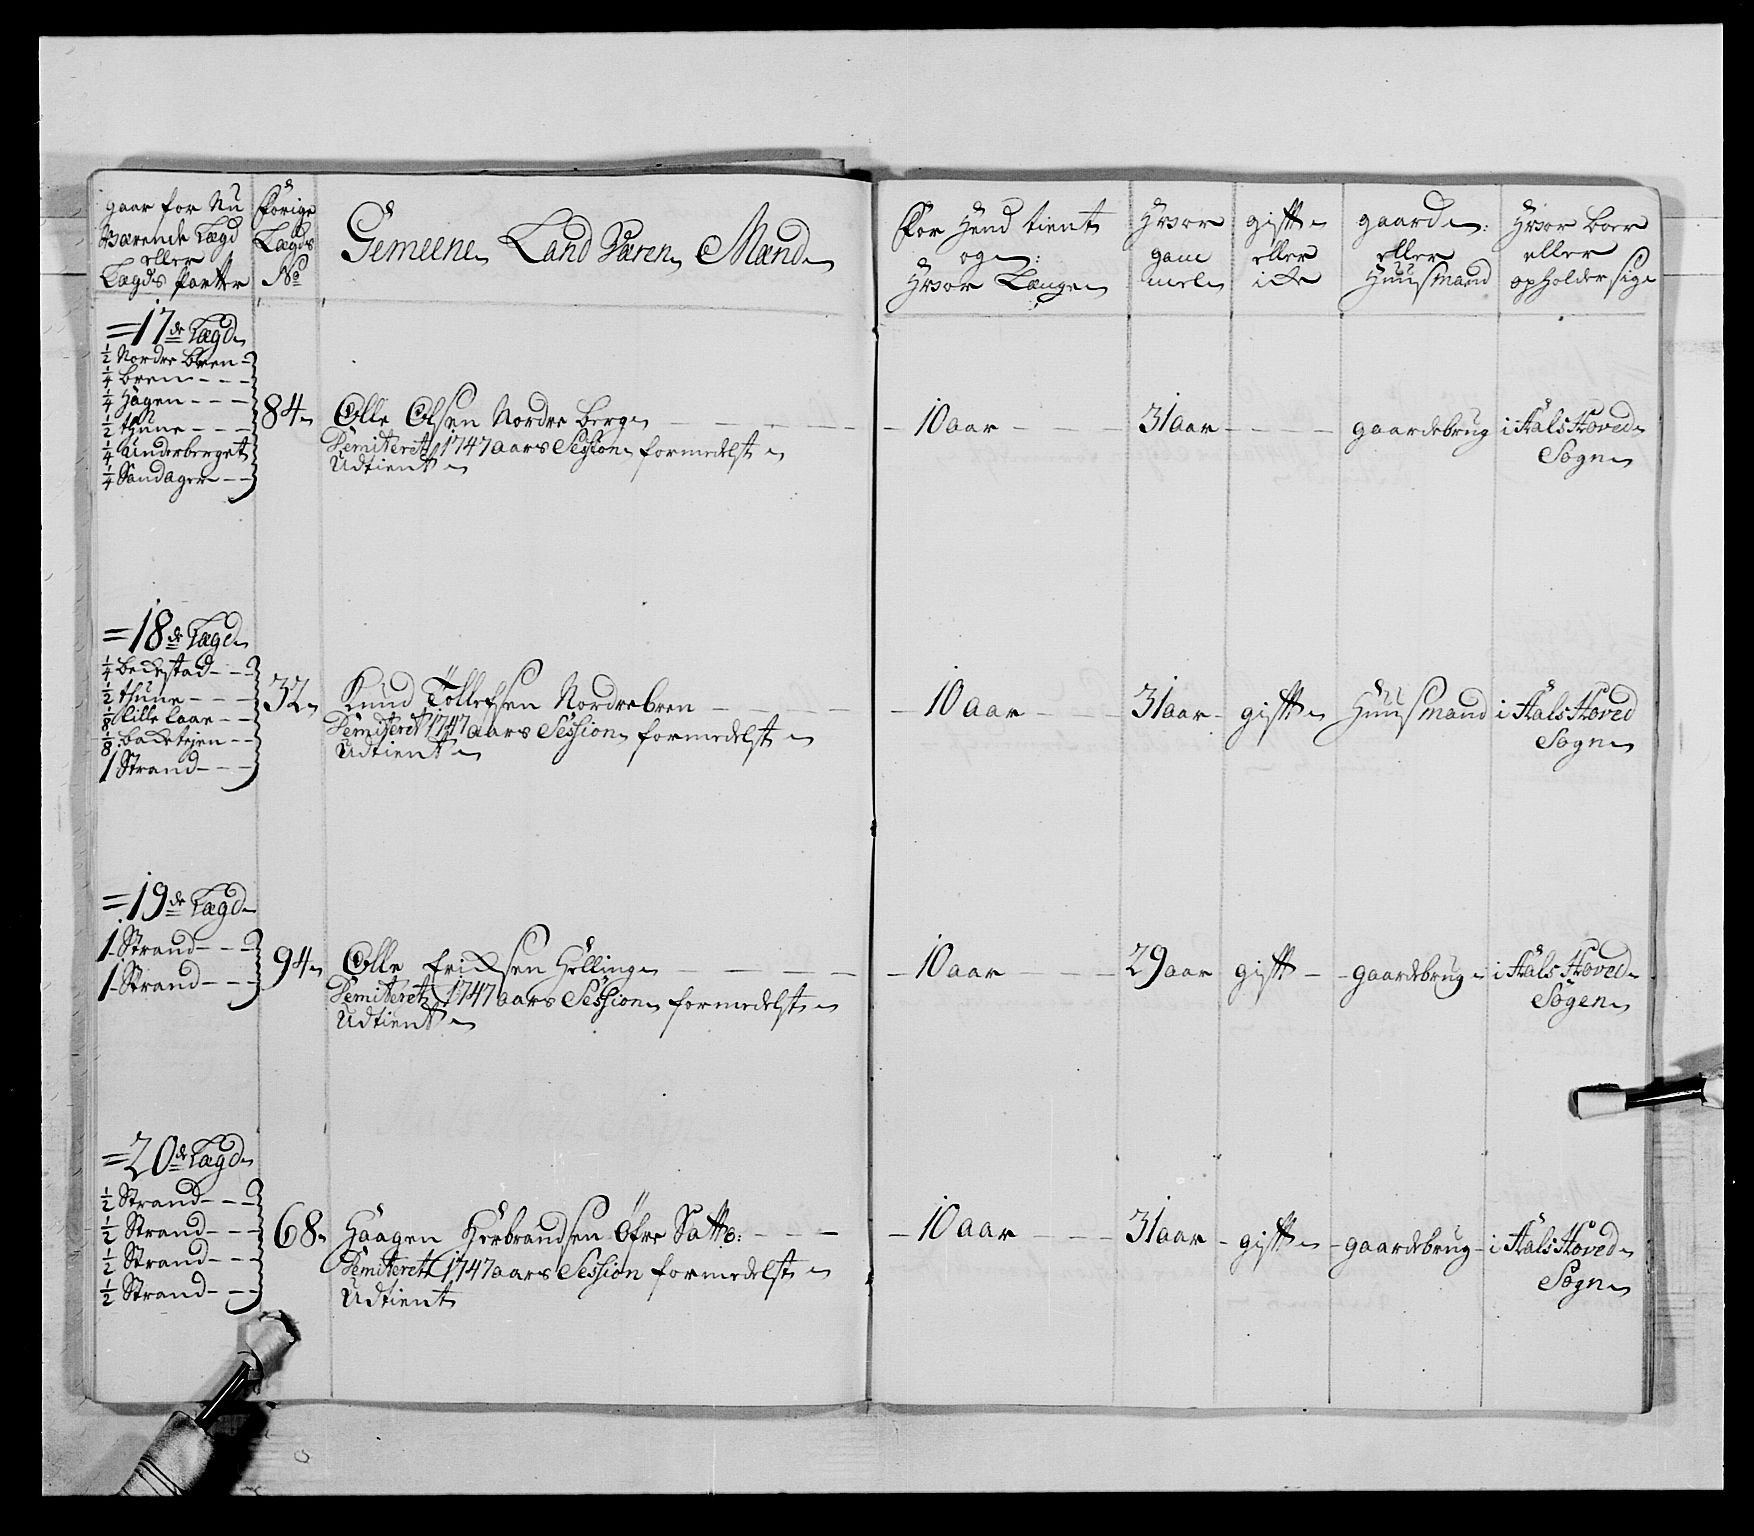 gaar for Nu
Værende Lægd
eller
Lægds Parter
Forige
Lægds
No
Gemeene Land Væren Mænd
For Hend tient
og
Hvor Længe
Hvor
gam
mel
gift
eller
icke
gaard
eller
Huusmand
Hvor boer
eller
opholder sig
=17de Lægd
1/2 Nordre Bren
1/4 Bren
1/4 Hagen
1/2 thune
1/4 Underberget
1/4 Sandager
84
Olle Olsen Nordre Berg
Demiteret 1747 aars Session formedelst
Udtient
10 aar
31 aar
gaardebrug
i Aals Hoved
Sogn
=18de Lægd
1/4 Beckestad
1/2 thune
1/8 Lille Laar
1/8 Backetejen
1 Strand
32
Knud Tollefsen Nordrebren
Demiteret 1747 aars Session formedelst
Udtient
10 aar
31 aar
gift
Huusmand
i Aals Hoved
Sogn
=19de Lægd
1 Strand
1 Strand
94
Olle Ericksen Helling
Demiteret 1747 aars Session formedelst
Udtient
10 aar
29 aar
gift
gaardebrug
i Aals Hoved
Sogen
=20de Lægd
1/2 Strand
1/2 Strand
1/2 Strand
1/2 Strand
68
Haagen Herbrandsen Øfre
Demiteret 1747 aars Session formedelst
Udtient
10 aar
31 aar
gift
gaardebrug
i Aals Hoved
Sogn